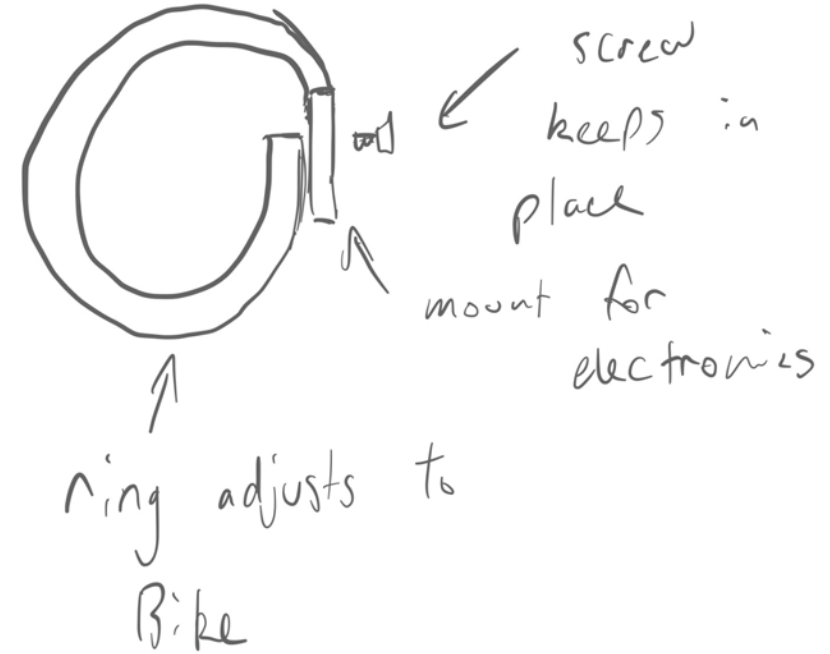 screw
keeps in
place
mount for
electronics
ring adjusts to
Bike